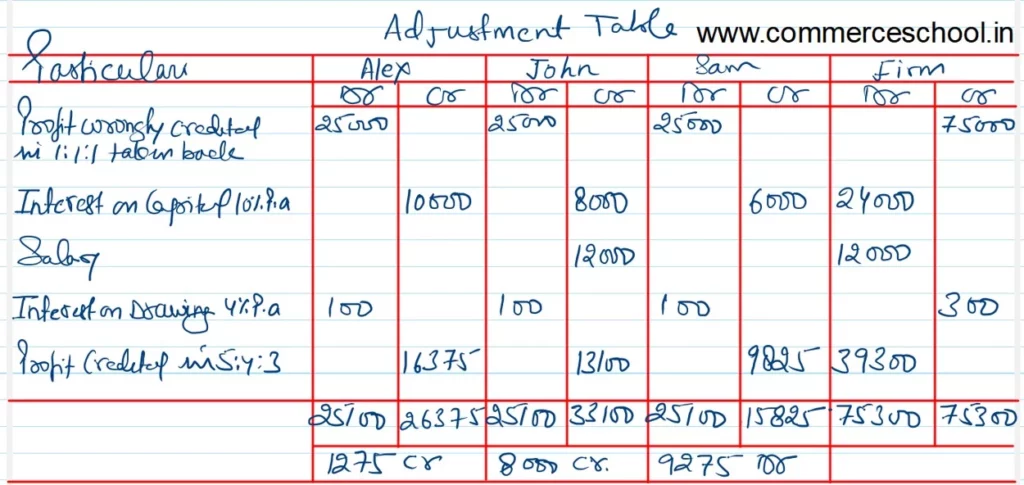 Adjustment Table www.commerceschool.in
Particulars Alex John Sam Firm
Dr Cr Dr Cr Dr Cr Dr Cr
Profit wrongly credited 25000 25000 25000 75000
in 1:1:1 taken back
Interest on Capital 10% P.a 10000 8000 6000 24000
Salary 12000 12000
Interest on Drawing 4% P.a 100 100 100 300
Profit Credited in 5:4:3 16375 13100 9825 39300
25100 26375 25100 33100 25100 15825 75300 75300
1275 Cr 8000 Cr. 9275 Dr